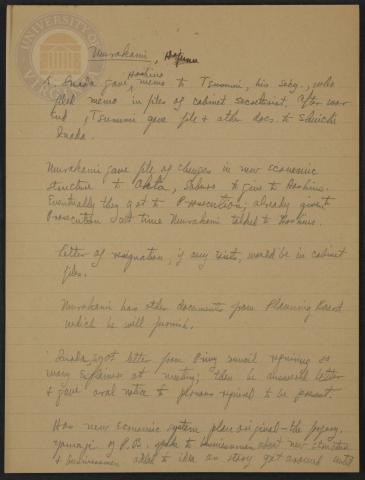 UNIVERSITY OF VIRGINIA
Murakami, Hajime
Inada gave Hoshino memo to Tsunomi, his secy., who
memo in files of cabinet secretariat. After war
Tsunomi gave file & other docs. to Shuichi
Inada.
Murakami gave file of changes in new economic
structure to Okita, Saburo to give to Hoshino.
Eventually they got to Prosecution; already given to
Prosecution at time Murakami talked to Hoshino.
Letter of resignation, if any exists, would be in cabinet
files.
Murakami has other documents from Planning Board
which he will furnish.
Inada got letter from Privy Council requiring so
many explainers at meeting; then he answered letter
& gave oral notice to persons required to be present.
How new economic system plan original—the
of P.B. spoke to businessmen about new structure
& businessmen added to idea so story got around until